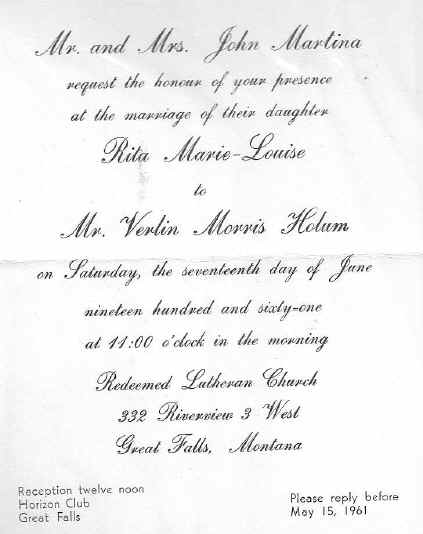 Mr. and Mrs. John Martina
request the honour of your presence
at the marriage of their daughter
Rita Marie-Louise
to
Mr. Verlin Morris Holum
on Saturday, the seventeenth day of June
nineteen hundred and sixty-one
at 11:00 o'clock in the morning
Redeemed Lutheran Church
332 Riverview 3 West
Great Falls, Montana
Reception twelve noon
Horizon Club
Great Falls
Please reply before
May 15, 1961